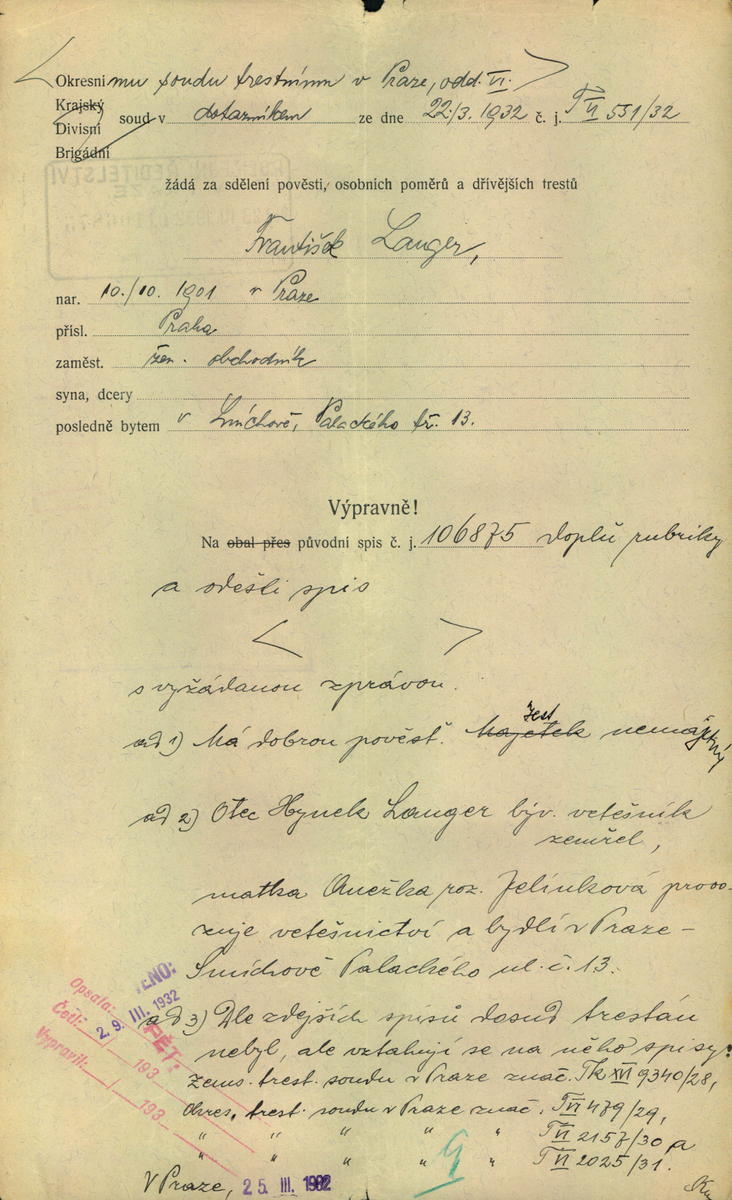 Okresnímu soudu trestnímu v Praze, odd. VI.
Krajský
Divisní soud v dotazníkem ze dne 22./3. 1932 č. j. T VI 551/32
Brigádní
žádá za sdělení pověsti, osobních poměrů a dřívějších trestů
František Langer,
nar. 10./10. 1901 v Praze
přísl. Praha
zaměst. žen. obchodník
syna, dcery
posledně bytem v Smíchově, Palackého tř. 13.
Výpravně!
Na obal přes původní spis č. j. 106875 doplň rubriky
a odešli spis
s vyžádanou zprávou.
ad 1) Má dobrou pověst. Majetek jest nemajetný
ad 2) Otec Hynek Langer býv. vetešník
zemřel,
matka Anežka roz. Jelínková provo-
zuje vetešnictví a bydlí v Praze-
Smíchově Palackého ul. č. 13.
ad 3) Dle zdejších spisů dosud trestán
nebyl, ale vztahují se na něho spisy:
zems. trest. soudu v Praze znač. Tk XVI 9340/28,
okres. trest. soudu v Praze znač. T VI 479/29,
" " " " " T VI 2157/30 a
" " " " " T VI 2025/31.
V Praze, 25. III. 1932
Opsala:
Četl: 193
Vypravil: 193
29. III. 1932
ZPĚT: